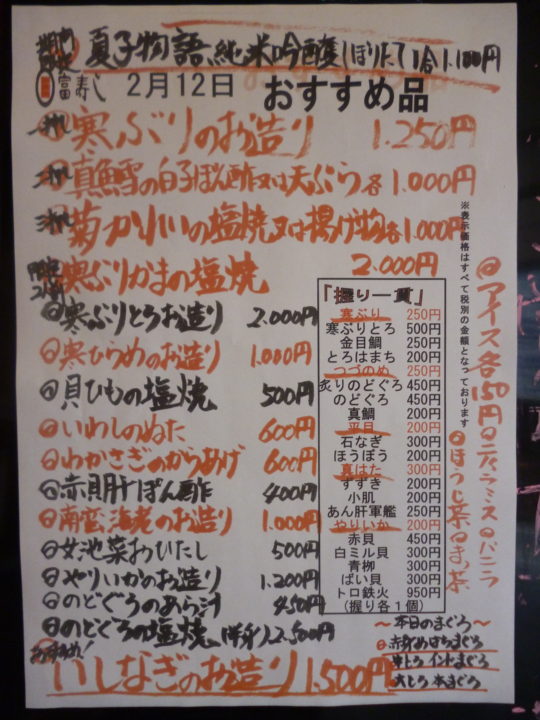 夏子物語 純米吟醸 しぼりたて 1合 1.100円
富寿し 2月12日 おすすめ品
寒ぶりのお造り 1.250円
真鱈の白子ぽん酢又は天ぷら 各1.000円
菊かれいの塩焼又は揚げ物 各1.000円
寒ぶりかまの塩焼 2.000円
寒ぶりとろお造り 2.000円
寒ひらめのお造り 1.000円
貝ひもの塩焼 500円
いわしのぬた 600円
わかさぎのからあげ 600円
赤貝肝ぽん酢 400円
南蛮海老のお造り 1.000円
女池菜おひたし 500円
やりいかのお造り 1.200円
のどぐろのあら汁 450円
のどぐろの塩焼(半身) 2.500円
おすすめ!
いしなぎのお造り 1.500円
「握り一貫」
寒ぶり 250円
寒ぶりとろ 500円
金目鯛 250円
とろはまち 200円
つづのめ 250円
炙りのどぐろ 450円
のどぐろ 450円
真鯛 200円
平目 200円
石なぎ 300円
ほうぼう 200円
真はた 300円
すずき 200円
小肌 200円
あん肝軍艦 250円
やりいか 200円
赤貝 450円
白ミル貝 300円
青柳 300円
ばい貝 300円
トロ鉄火 950円
(握り各1個)
※表示価格はすべて税別の金額となっております
アイス各150円
ティラミス バニラ
ほうじ茶 まっ茶
～本日のまぐろ～
赤身 めばちまぐろ
中とろ インドまぐろ
大とろ 本まぐろ